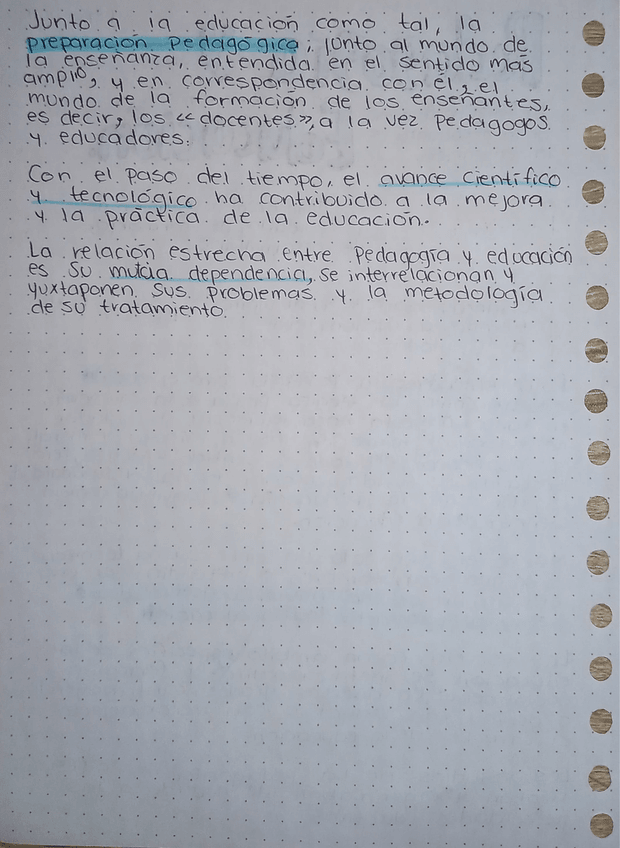 Junto a la educación como tal, la
preparación pedagógica; junto al mundo de
la enseñanza, entendida en el sentido más
amplio, y en correspondencia con él, el
mundo de la formación de los enseñantes,
es decir, los «docentes», a la vez pedagogos
y educadores.
Con el paso del tiempo, el avance científico
y tecnológico ha contribuido a la mejora
y la práctica de la educación.
La relación estrecha entre pedagogía y educación
es su mutua dependencia, se interrelacionan y
yuxtaponen sus problemas y la metodología
de su tratamiento